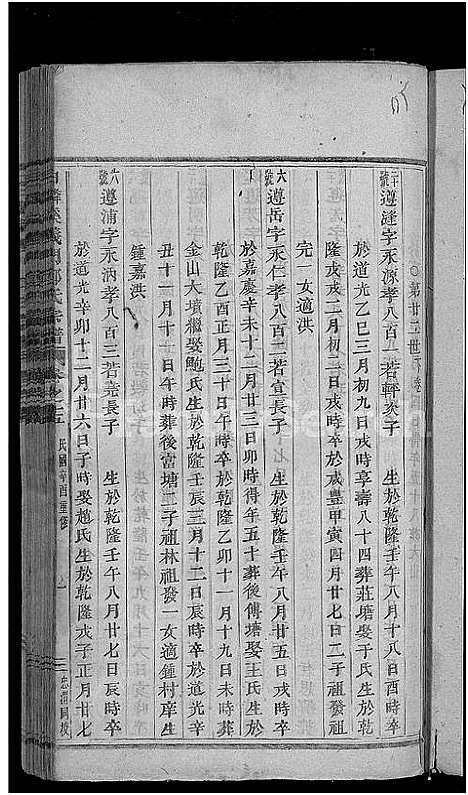 二十號 遵逢字永源孝八百一若軒次子 生於乾隆壬午八月十八日酉時卒
於道光乙巳三月初九日戌時享壽八十四葬莊塘娶于氏生於乾
隆戊戌二月初二日戌時卒於咸豐甲寅四月廿七日二子祖發祖
完一女適洪
六號 遵岳字永仁孝八百二若宣長子 生於乾隆壬午八月廿五日戌時卒
於嘉慶辛未十二月廿三日卯時得年五十葬後傅塘娶王氏生於
乾隆乙酉正月三十日午時卒於乾隆乙卯十一月十九日未時葬
金山大墳繼娶鮑氏生於乾隆壬辰三月十二日辰時卒於道光辛
丑十一月十一日午時葬後富塘二子祖林祖發一女適鍾村庠生
鍾嘉洪
六號 遵浦字永汭孝八百三若堯長子 生於乾隆壬午八月廿七日辰時卒
於道光辛卯十二月廿六日子時娶趙氏生於乾隆戊子正月廿七
義門鄭氏宗譜
民國辛酉重修